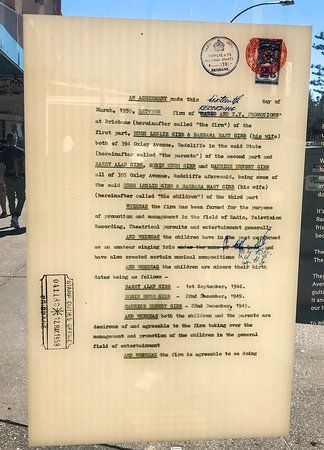 DUPLICATE
BRISBANE
AN AGREEMENT made this sixteenth day of
March, 1959, BETWEEN firm of "RADIO AND T.V. PROMOTIONS"
RECORDING
at Brisbane (hereinafter called "the firm") of the
first part, HUGH LESLIE GIBB & BARBARA MARY GIBB (his wife)
both of 394 Oxley Avenue, Redcliffe in the said State
(hereinafter called "the parents") of the second part and
BARRY ALAN GIBB, ROBIN HUGH GIBB and MAURICE ERNEST GIBB
all of 395 Oxley Avenue, Redcliffe aforesaid, being sons of
the said HUGH LESLIE GIBB & BARBARA MARY GIBB (his wife)
(hereinafter called "the children") of the third part
WHEREAS the firm has been formed for the purpose
of promotion and management in the field of Radio, Television
Recording, Theatrical pursuits and entertainment generally
AND WHEREAS the children have in the past performed
as an amateur singing trio under the
have also created certain musical compositions
AND WHEREAS the children are minors their birth
dates being as follows -
BARRY ALAN GIBB - 1st September, 1946.
ROBIN HUGH GIBB - 22nd December, 1949.
MAURICE ERNEST GIBB - 22nd December, 1949.
AND WHEREAS both the children and the parents are
desirous of and agreeable to the firm taking over the
management and promotion of the children in the general
field of entertainment
AND WHEREAS the firm is agreeable to so doing
STAMP DUTIES OFFICE